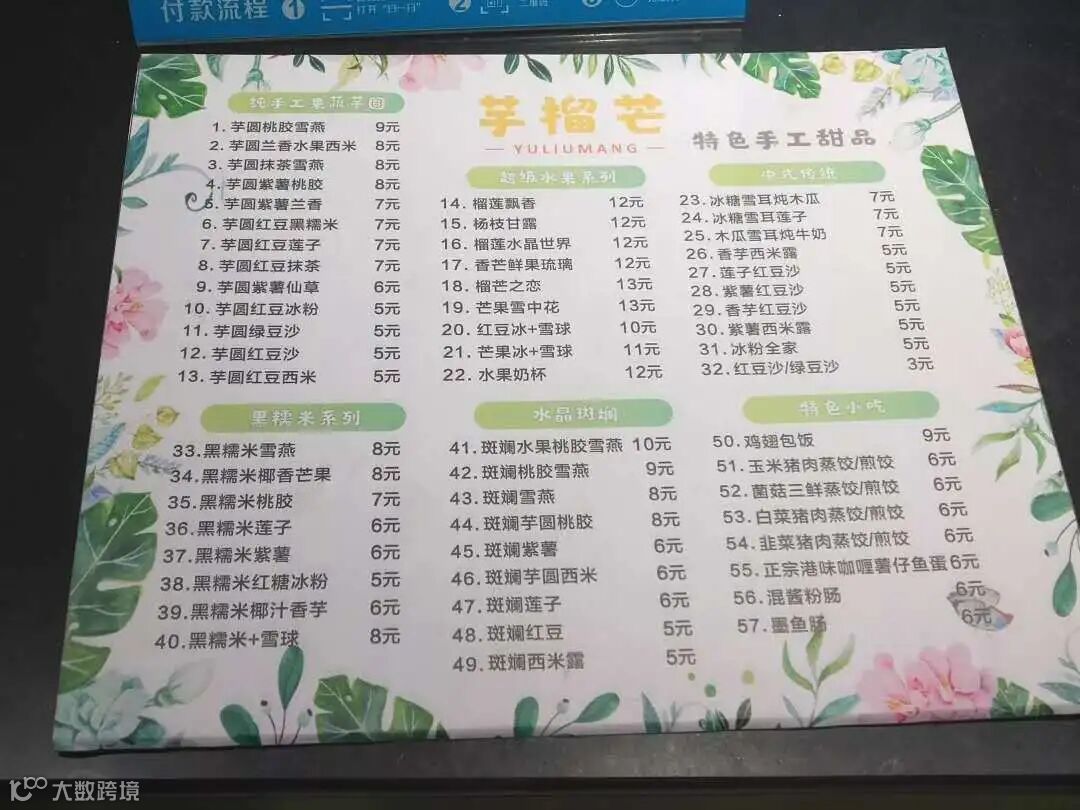 付款流程 1 打开"扫一扫" 2
芋榴芒
YULIUMANG
特色手工甜品
纯手工果蔬芋圆
1. 芋圆桃胶雪燕 9元
2. 芋圆兰香水果西米 8元
3. 芋圆抹茶雪燕 8元
4. 芋圆紫薯桃胶 8元
5. 芋圆紫薯兰香 7元
6. 芋圆红豆黑糯米 7元
7. 芋圆红豆莲子 7元
8. 芋圆红豆抹茶 7元
9. 芋圆紫薯仙草 6元
10. 芋圆红豆冰粉 5元
11. 芋圆绿豆沙 5元
12. 芋圆红豆沙 5元
13. 芋圆红豆西米 5元
超级水果系列
14. 榴莲飘香 12元
15. 杨枝甘露 12元
16. 榴莲水晶世界 12元
17. 香芒鲜果琉璃 12元
18. 榴芒之恋 13元
19. 芒果雪中花 13元
20. 红豆冰+雪球 10元
21. 芒果冰+雪球 11元
22. 水果奶杯 12元
中式传统
23. 冰糖雪耳炖木瓜 7元
24. 冰糖雪耳莲子 7元
25. 木瓜雪耳炖牛奶 7元
26. 香芋西米露 5元
27. 莲子红豆沙 5元
28. 紫薯红豆沙 5元
29. 香芋红豆沙 5元
30. 紫薯西米露 5元
31. 冰粉全家 5元
32. 红豆沙/绿豆沙 3元
黑糯米系列
33. 黑糯米雪燕 8元
34. 黑糯米椰香芒果 8元
35. 黑糯米桃胶 7元
36. 黑糯米莲子 6元
37. 黑糯米紫薯 6元
38. 黑糯米红糖冰粉 5元
39. 黑糯米椰汁香芋 6元
40. 黑糯米+雪球 8元
水晶斑斓
41. 斑斓水果桃胶雪燕 10元
42. 斑斓桃胶雪燕 9元
43. 斑斓雪燕 8元
44. 斑斓芋圆桃胶 8元
45. 斑斓紫薯 6元
46. 斑斓芋圆西米 6元
47. 斑斓莲子 6元
48. 斑斓红豆 5元
49. 斑斓西米露 5元
特色小吃
50. 鸡翅包饭 9元
51. 玉米猪肉蒸饺/煎饺 6元
52. 菌菇三鲜蒸饺/煎饺 6元
53. 白菜猪肉蒸饺/煎饺 6元
54. 韭菜猪肉蒸饺/煎饺 6元
55. 正宗港味咖喱薯仔鱼蛋 6元
56. 混酱粉肠 6元
57. 墨鱼肠 6元
大数跨境